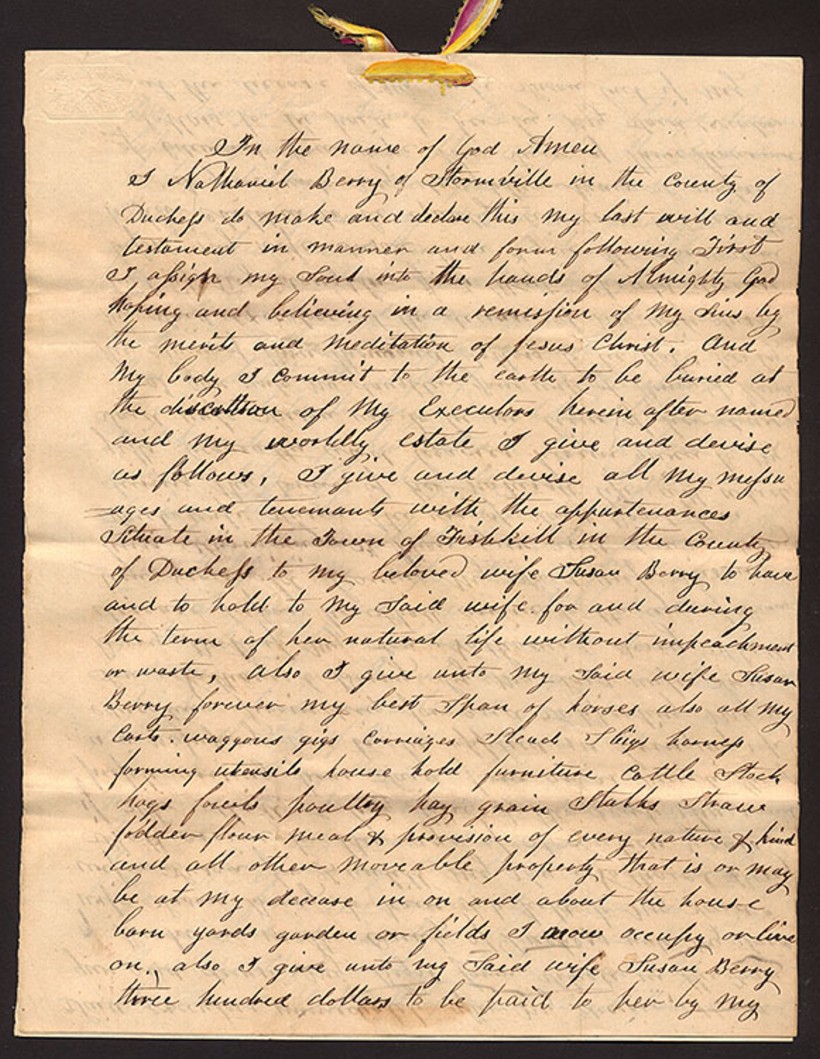 In the name of God Amen
I Nathaniel Berry of Stormville in the County of
Duchess do make and declare this my last will and
testament in manner and form following First
I assign my Soul into the hands of Almighty God
hoping and believing in a remission of my Sins by
the merits and meditation of Jesus Christ. And
My body I commit to the earth to be buried at
the discettion of My Executors herein after named
and my worldly estate I give and devise
as follows, I give and devise all my messu
ages and tenemants with the appurtenances
Situate in the Town of Fishkill in the County
of Duchess to my beloved wife Susan Berry to have
and to hold to my Said wife for and during
the term of her natural life without impeachment
or waste, also I give unto my Said wife Susan
Berry forever my best Span of horses also all my
Carts waggons gigs Carriages Sleads Sleighs harness
farming utensils house hold furniture Cattle Stock
hogs fowls poultry hay grain Stalks Straw
fodder flour meal & provision of every nature & kind
and all other moveable property that is or may
be at my decease in on and about the house
barn yards garden or fields I now occupy or live
on, also I give unto my Said wife Susan Berry
three hundred dollars to be paid to her by my